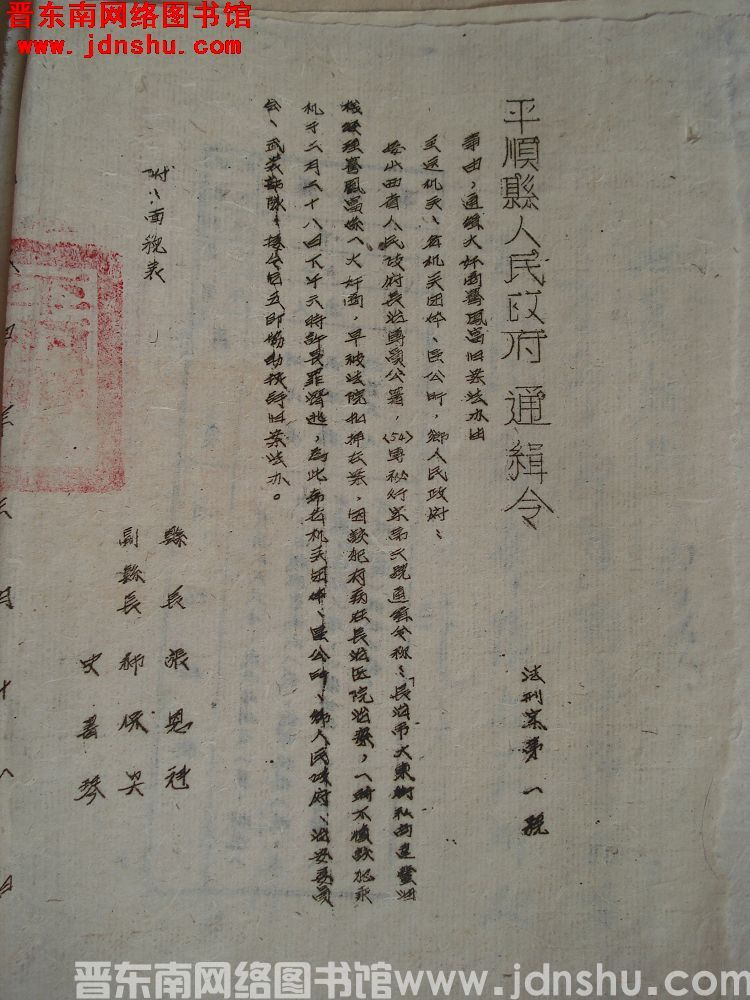 晋东南网络图书馆
www.jdnshu.com
平順縣人民政府 通緝令
法刑字第一號
事由，通緝大奸商 風高归案法办由
主送机关、各机关团体、区公所，鄉人民政府：
山西省人民政府長治專員公署，(54)專秘行字第 號通緝令称：「長治市大東街私商
風高係一大奸商，早被法院扣押在案，因該犯有病在長治医院治療，一時不慎該犯乘
机于二月二十八日下午 時許畏罪潛逃，为此希各机关团体、区公所、鄉人民政府、治安委員
会、武裝部隊，接令后立即協助 归案法办。
附：面貌表
縣長 張
副縣長
史
月十八日
晋东南网络图书馆 www.jdnshu.com